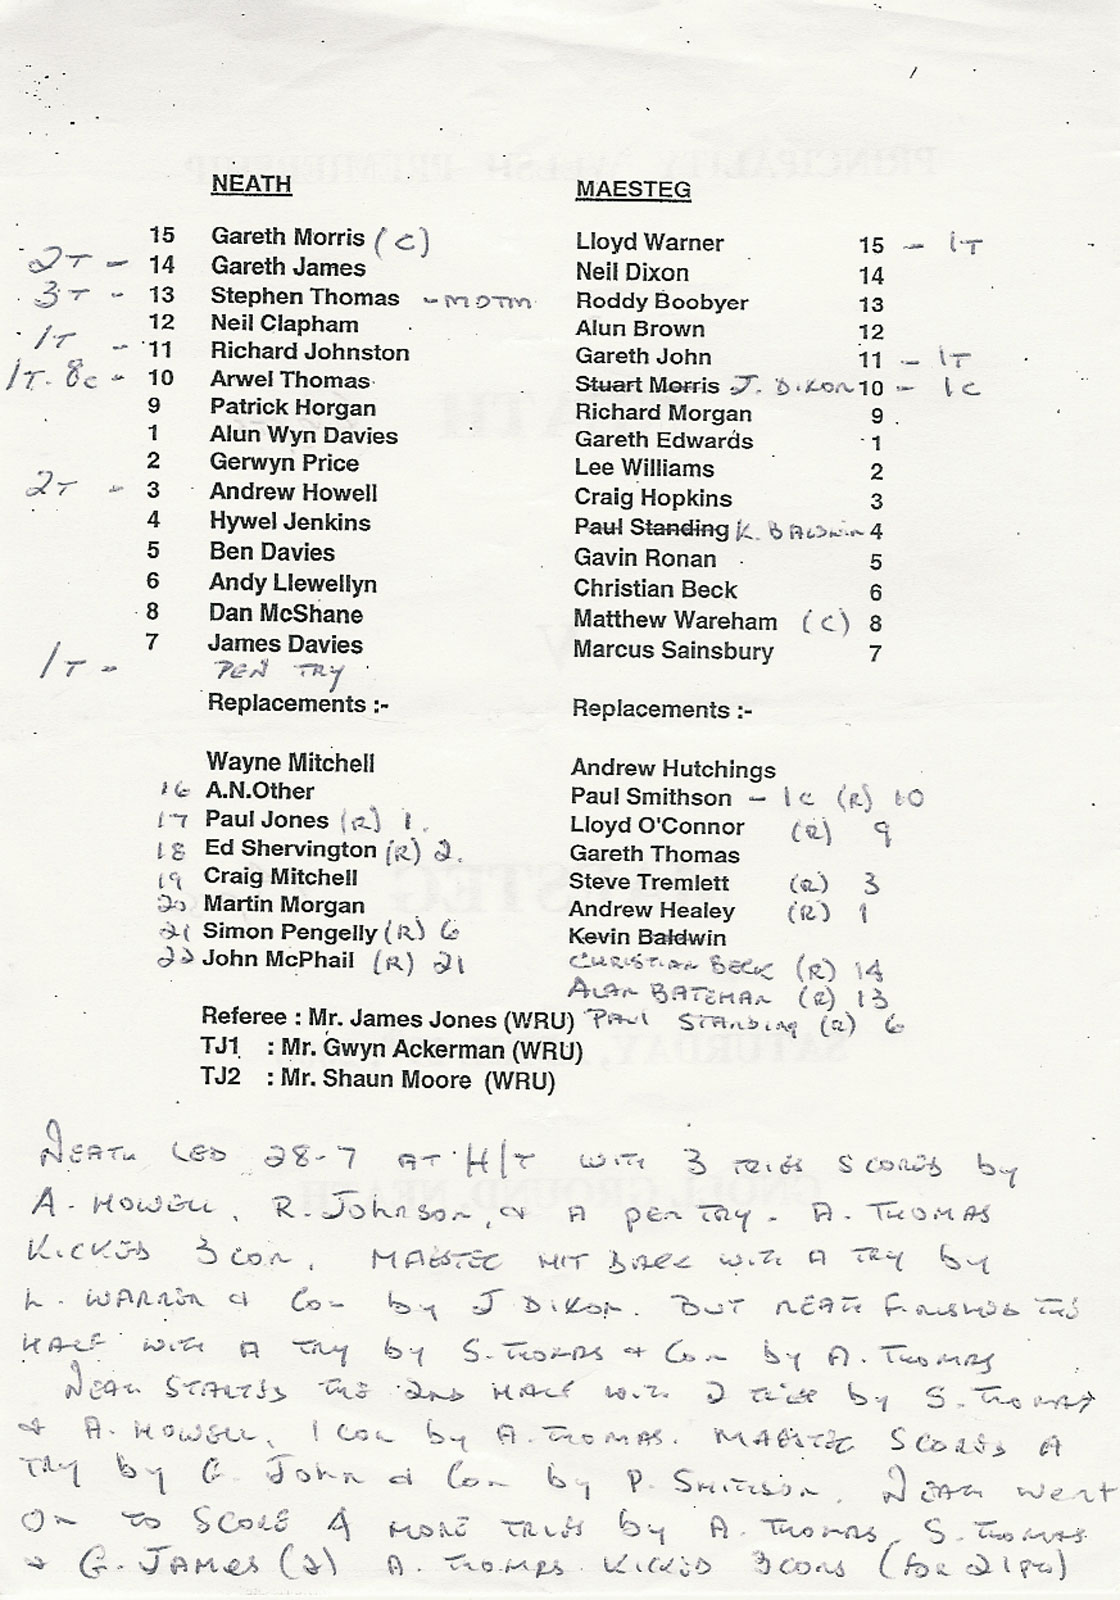 NEATH MAESTEG
15 Gareth Morris (C) Lloyd Warner 15 - 1T
2T - 14 Gareth James Neil Dixon 14
3T - 13 Stephen Thomas - MOTM Roddy Boobyer 13
12 Neil Clapham Alun Brown 12
1T - 11 Richard Johnston Gareth John 11 - 1T
1T. 8c - 10 Arwel Thomas Stuart Morris J. DIXON 10 - 1C
9 Patrick Horgan Richard Morgan 9
1 Alun Wyn Davies Gareth Edwards 1
2 Gerwyn Price Lee Williams 2
2T - 3 Andrew Howell Craig Hopkins 3
4 Hywel Jenkins Paul Standing K. BALDWIN 4
5 Ben Davies Gavin Ronan 5
6 Andy Llewellyn Christian Beck 6
8 Dan McShane Matthew Wareham (C) 8
7 James Davies Marcus Sainsbury 7
1T - PEN TRY
Replacements :- Replacements :-
Wayne Mitchell Andrew Hutchings
16 A.N.Other Paul Smithson - 1C (R) 10
17 Paul Jones (R) 1. Lloyd O'Connor (R) 9
18 Ed Shervington (R) 2. Gareth Thomas
19 Craig Mitchell Steve Tremlett (R) 3
20 Martin Morgan Andrew Healey (R) 1
21 Simon Pengelly (R) 6 Kevin Baldwin
22 John McPhail (R) 21 CHRISTIAN BECK (R) 14
ALAN BATEMAN (R) 13
Referee : Mr. James Jones (WRU) PAUL STANDING (R) 6
TJ1 : Mr. Gwyn Ackerman (WRU)
TJ2 : Mr. Shaun Moore (WRU)
NEATH LED 28-7 AT H/T WITH 3 TRIES SCORED by
A. HOWELL, R. JOHNSON, & A PEN TRY. A. THOMAS
KICKED 3 CON. MAESTEG HIT BACK WITH A TRY by
L. WARNER & Con by J DIXON. BUT NEATH FINISHED THE
HALF WITH A TRY by S. THOMAS & Con by A. THOMAS
NEATH STARTED THE 2ND HALF WITH 2 TRIES by S. THOMAS
& A. HOWELL, 1 CON by A. THOMAS. MAESTEG SCORED A
TRY by G. JOHN & Con by P. SMITHSON. NEATH WENT
ON TO SCORE 4 MORE TRIES by A. THOMAS, S. THOMAS
& G. JAMES (2) A. THOMAS KICKED 3 CONS (for 21 PTS)